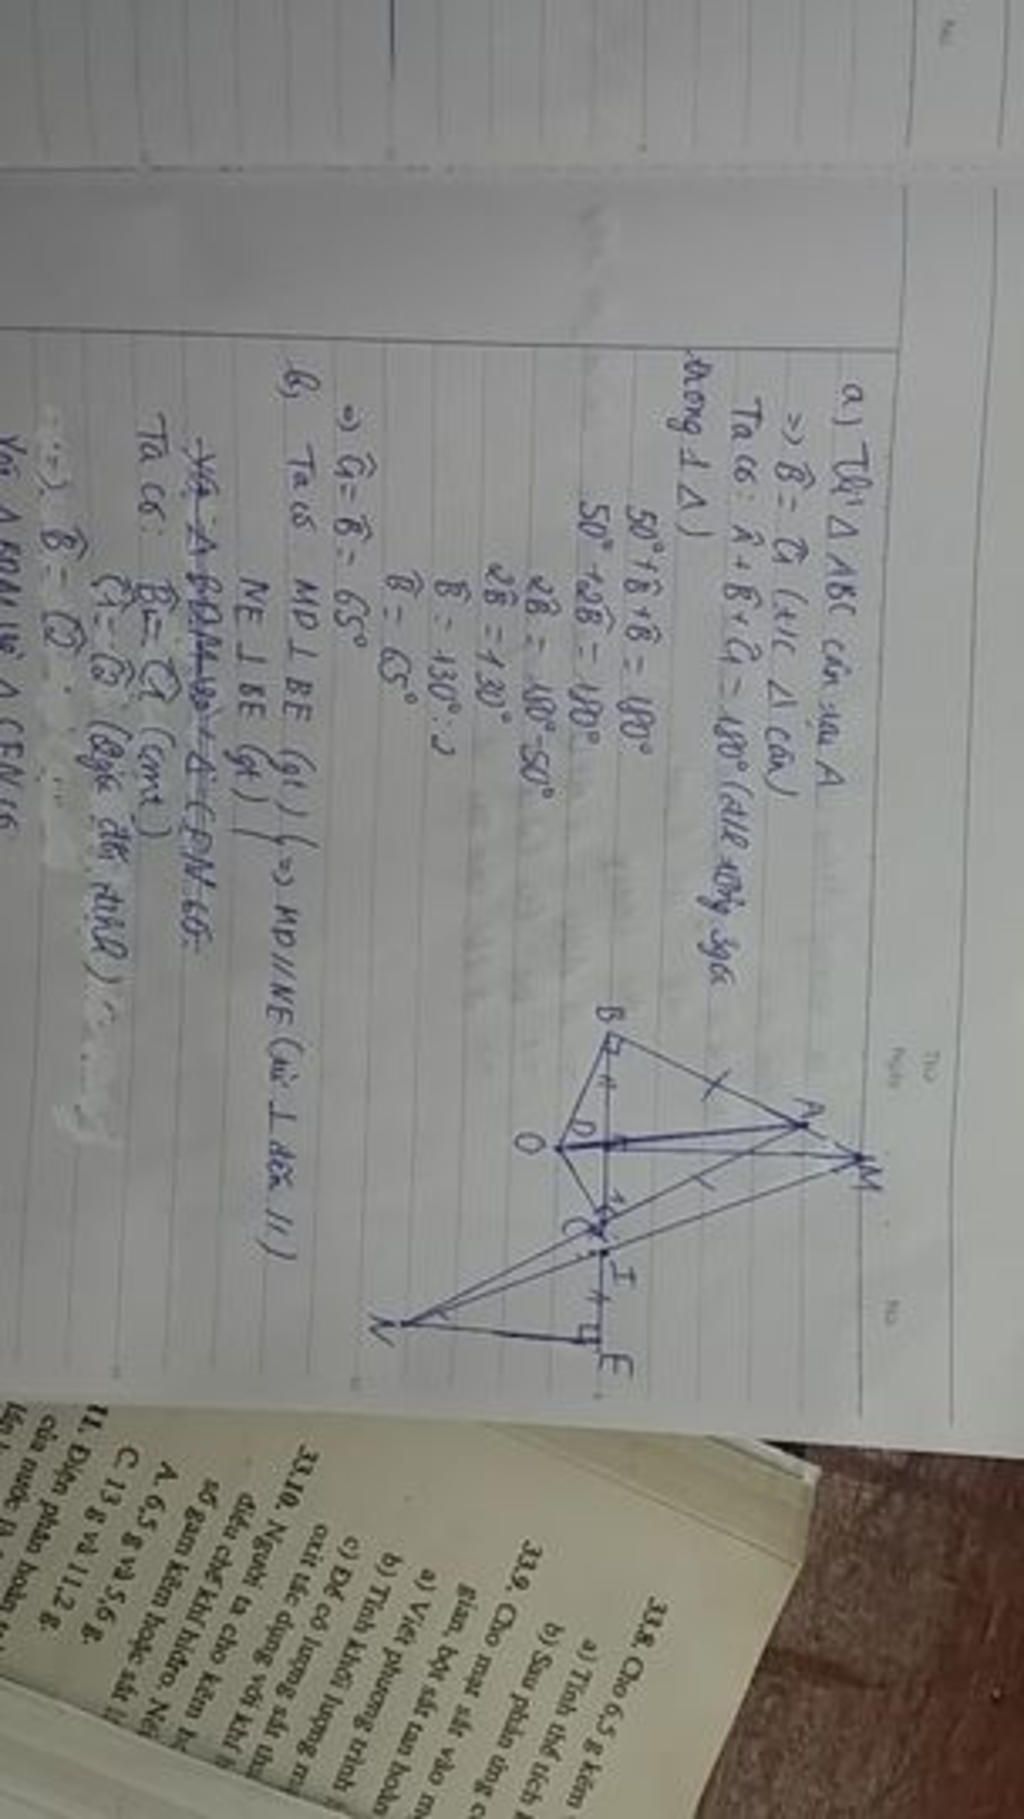 a) Vì Δ ABC cân tại A
=> B̂ = Ĉ1 (t/c Δ cân)
Ta có: Â + B̂ + Ĉ1 = 180° (đlí tổng 3 góc
trong 1 Δ)
50° + B̂ + B̂ = 180°
50° + 2B̂ = 180°
2B̂ = 180° - 50°
2B̂ = 130°
B̂ = 130° : 2
B̂ = 65°
=> Ĉ1 = B̂ = 65°
b, Ta có MD ⊥ BE (gt)
NE ⊥ BE (gt)
=> MD // NE (từ ⊥ đến //)
Ta có: B̂ = Ĉ1 (cmt)
Ĉ1 = Ĉ2 (góc đối đỉnh)
=> B̂ = Ĉ2
Và Δ BDM và Δ CEN có
M
A
B
D
C
I
E
O
N
33.8. Cho 6,5 g kẽm
a) Tính thể tích
b) Sau phản ứng
33.9. Cho mạt sắt vào
gian, bột sắt tan hoàn
a) Viết phương trình
b) Tính khối lượng
c) Để có lượng sắt
oxit tác dụng với khí
33.10. Người ta cho kẽm
điều chế khí hiđro.
số gam kẽm hoặc sắt
A. 6,5 g và 5,6 g.
C. 13 g và 11,2 g.
11. Điện phân hoàn
của nước